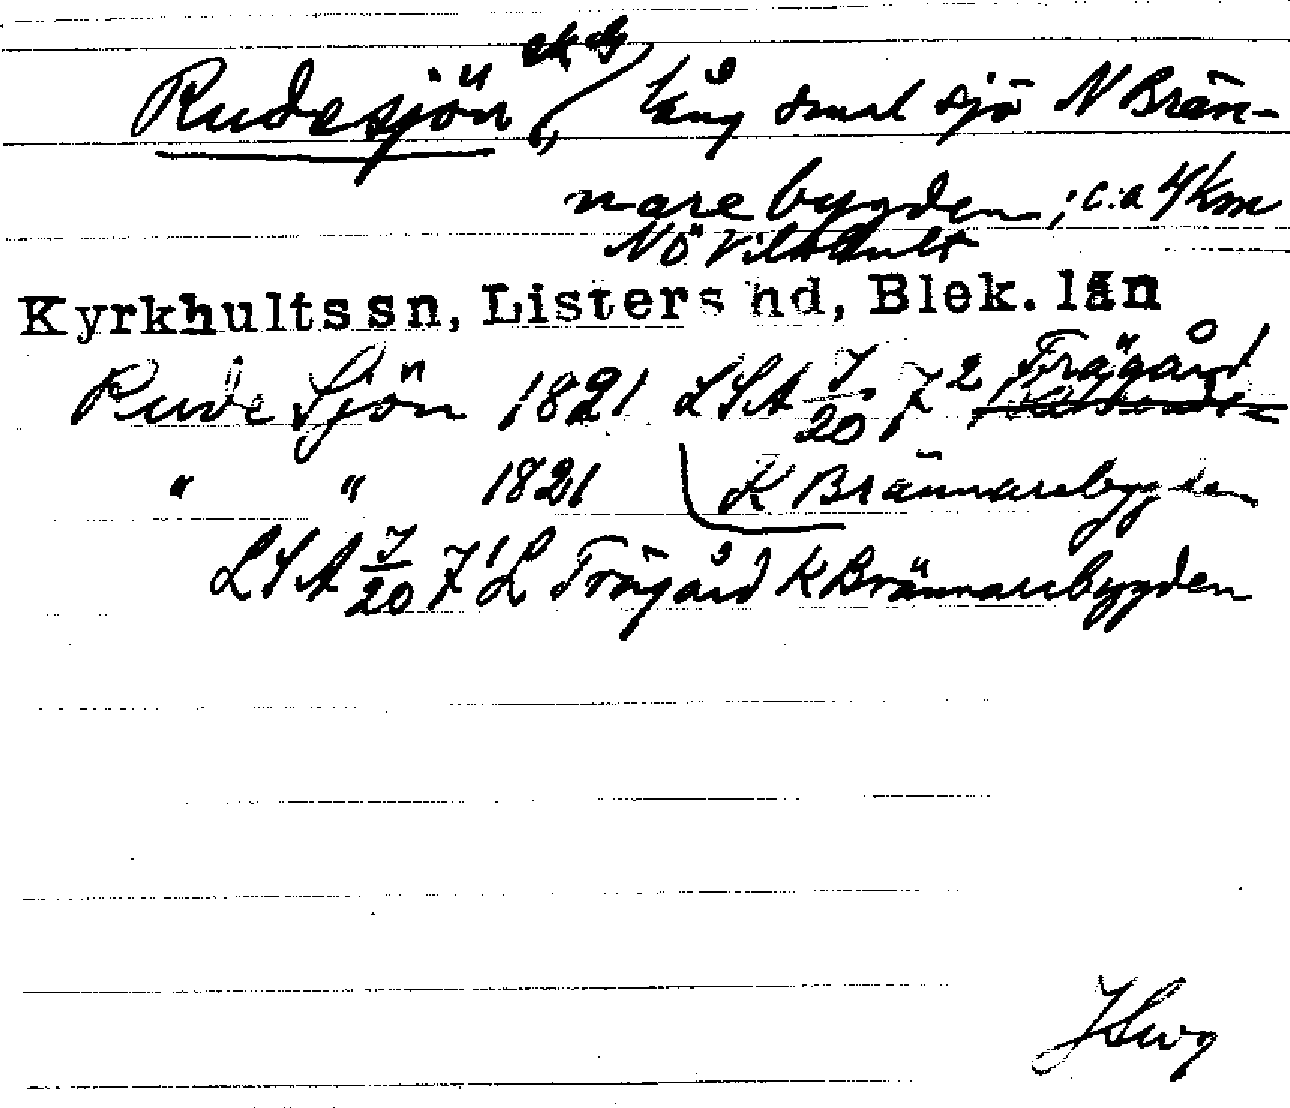 Rudesjön, ek G lång smal sjö N Brän-
nare bygden; c:a 4 km
NÖ Vilshult
Kyrkhults sn, Listers hd, Blek. län
Rude Sjön 1821 LSA 7/20 7² Trägård
" " 1821 K Brännarebygden
LSA 7/20 7' L Trägård K Brännarebygden